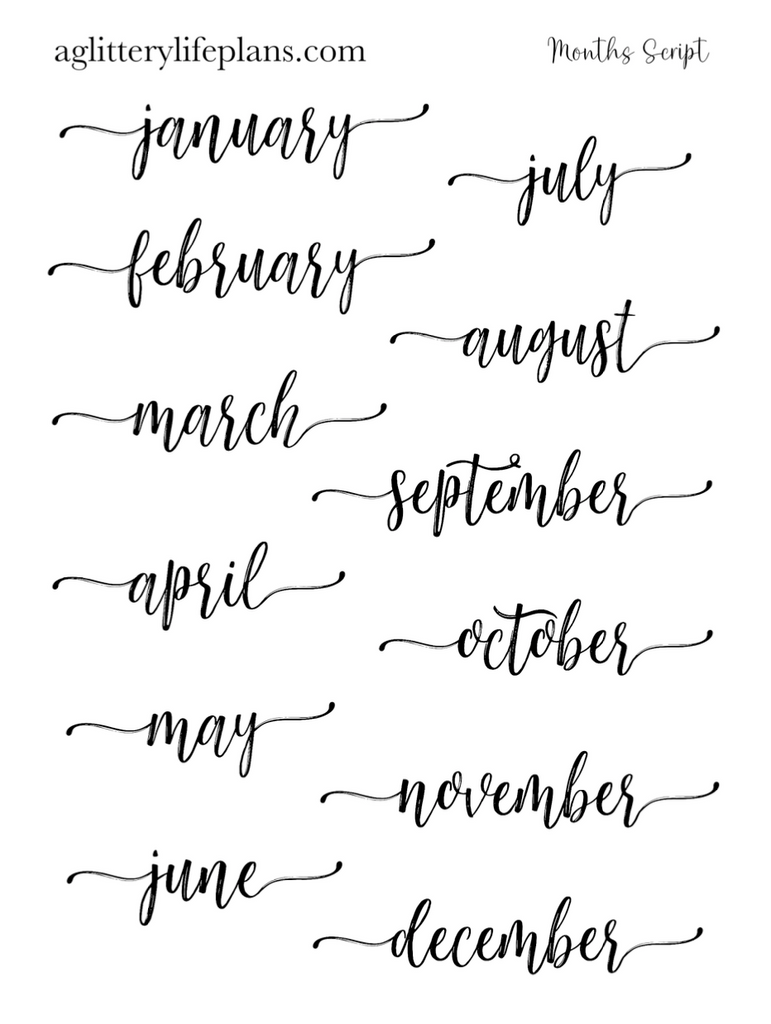 aglitterylifeplans.com
Months Script
january
february
march
april
may
june
july
august
september
october
november
december